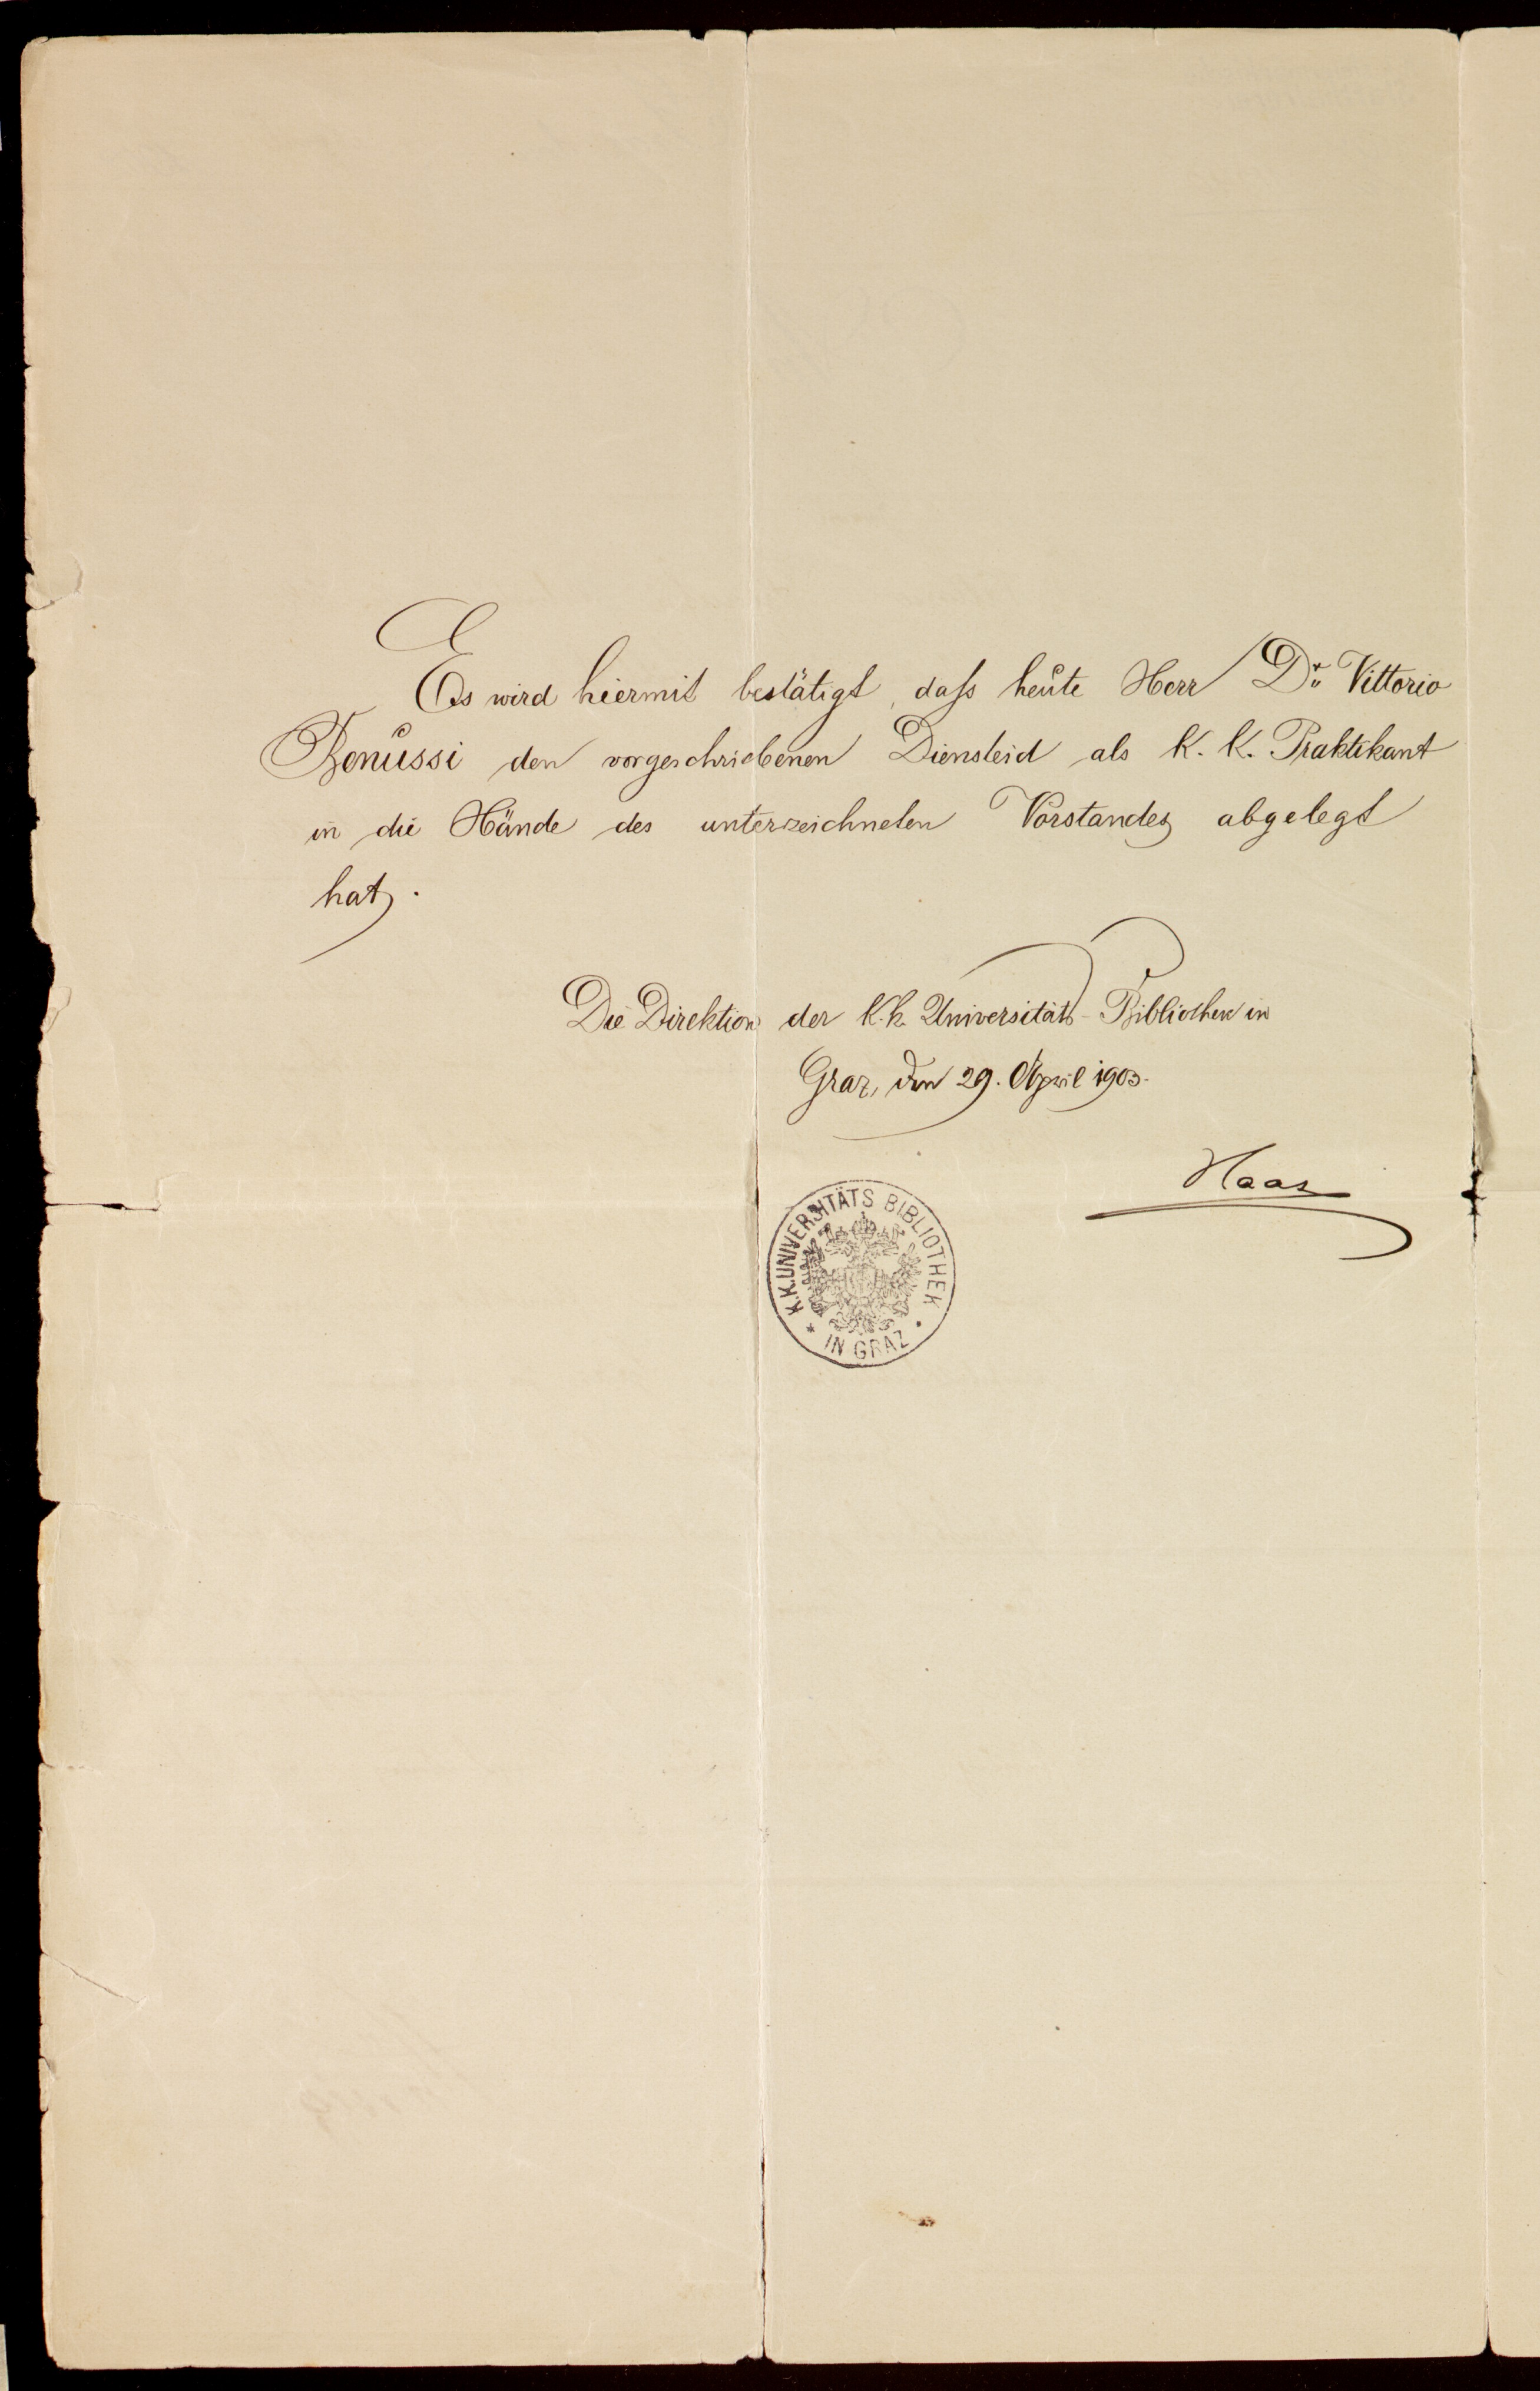 Es wird hiermit bestätigt, dass heute Herr Dr. Vittorio
Benussi den vorgeschriebenen Diensteid als k. k. Praktikant
in die Hände des unterzeichneten Vorstandes abgelegt
hat.
Die Direktion der k. k. Universitäts-Bibliothek in
Graz, den 29. April 1903.
Haas
K.K. UNIVERSITÄTS BIBLIOTHEK
* IN GRAZ *